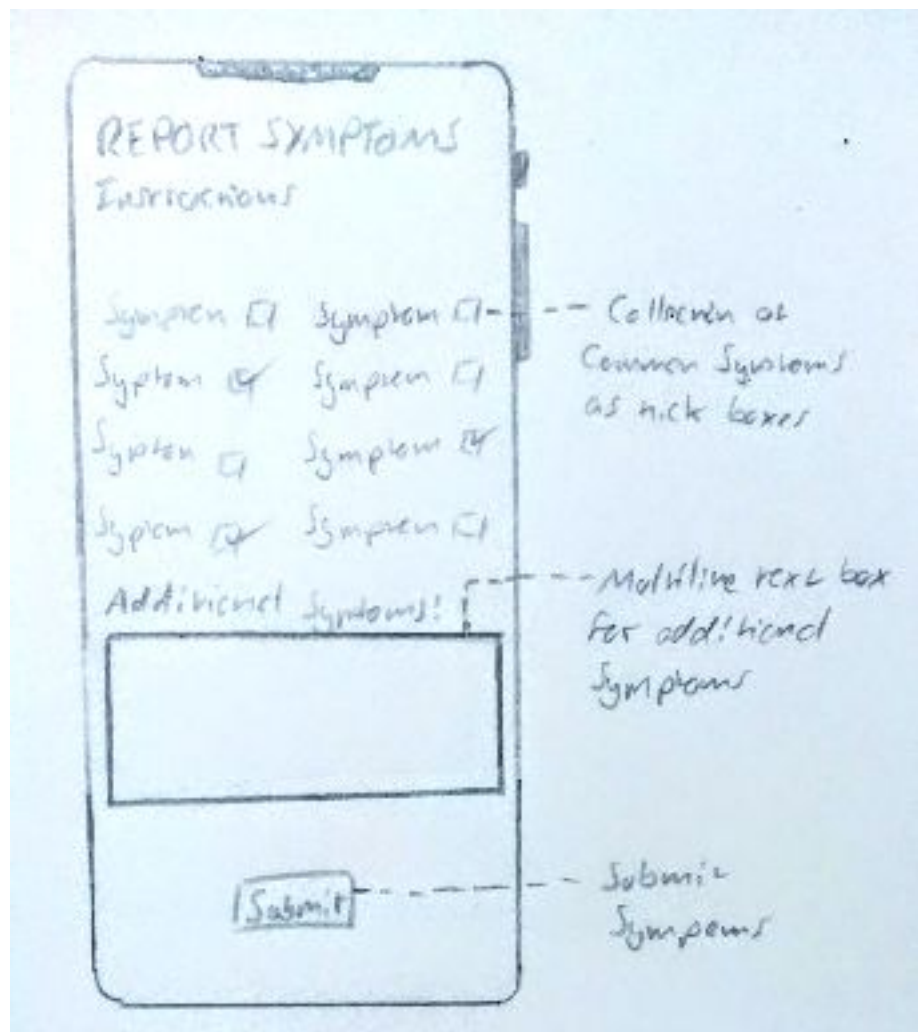 REPORT SYMPTOMS
Instructions
Symptom Symptom
Syptom Symptom
Syptom Symptom
Syptom Symptom
Additional Symptoms:
Submit
Collection of
Common Symptoms
as tick boxes
Multiline text box
for additional
Symptoms
Submit
Symptoms